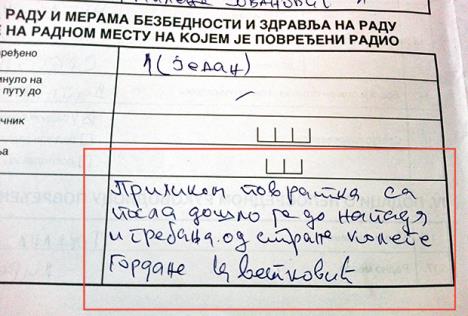 ЈОВАНОВИЋ
РАДУ И МЕРАМА БЕЗБЕДНОСТИ И ЗДРАВЉА НА РАДУ
НА РАДНОМ МЕСТУ НА КОЈЕМ ЈЕ ПОВРЕЂЕНИ РАДИО
вређено
1 (један)
нуло на
путу до
чник
Приликом повратка са
посла дошло је до напада
и гребања од стране колеге
Гордане Цветковић